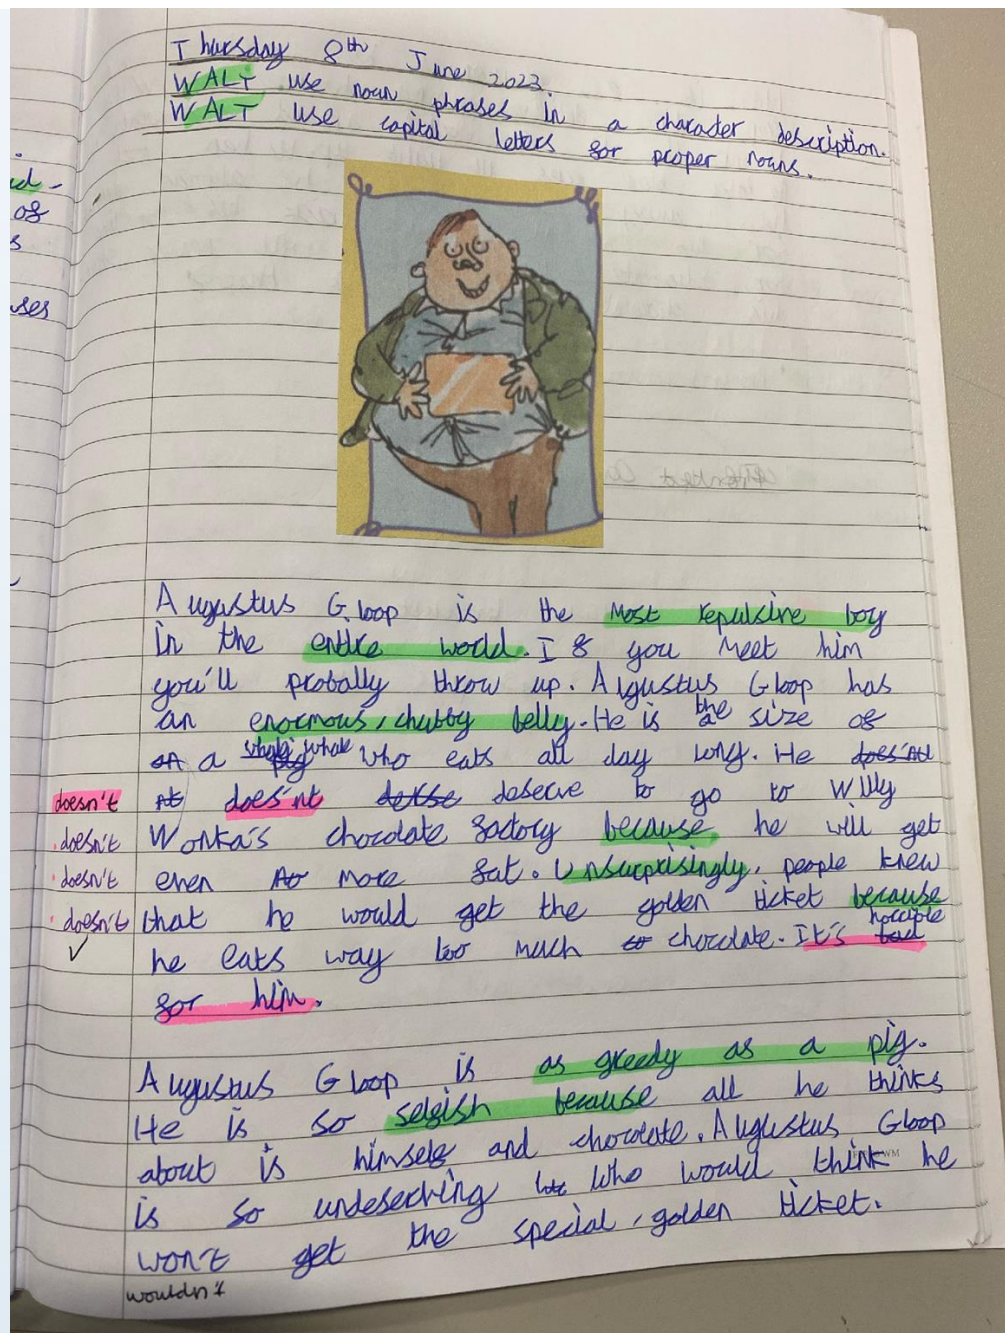 Thursday 8th June 2023.
WALT use noun phrases in a character description.
WALT use capital letters for proper nouns.
of
s
Augustus Gloop is the most repulsive boy
in the entire world. If you meet him
you'll probally throw up. Augustus Gloop has
an enormous, chubby belly. He is the size of
a whale who eats all day long. He does'nt
doesn't does'nt deserve to go to Willy
doesn't Wonka's chocolate factory because he will get
doesn't even more fat. Unsurprisingly, people knew
doesn't that he would get the golden ticket because
✓ he eats way too much chocolate. It's horrible
for him.
Augustus Gloop is as greedy as a pig.
He is so selfish because all he thinks
about is himself and chocolate. Augustus Gloop
is so undeserving who would think he
won't get the special, golden ticket.
wouldn't